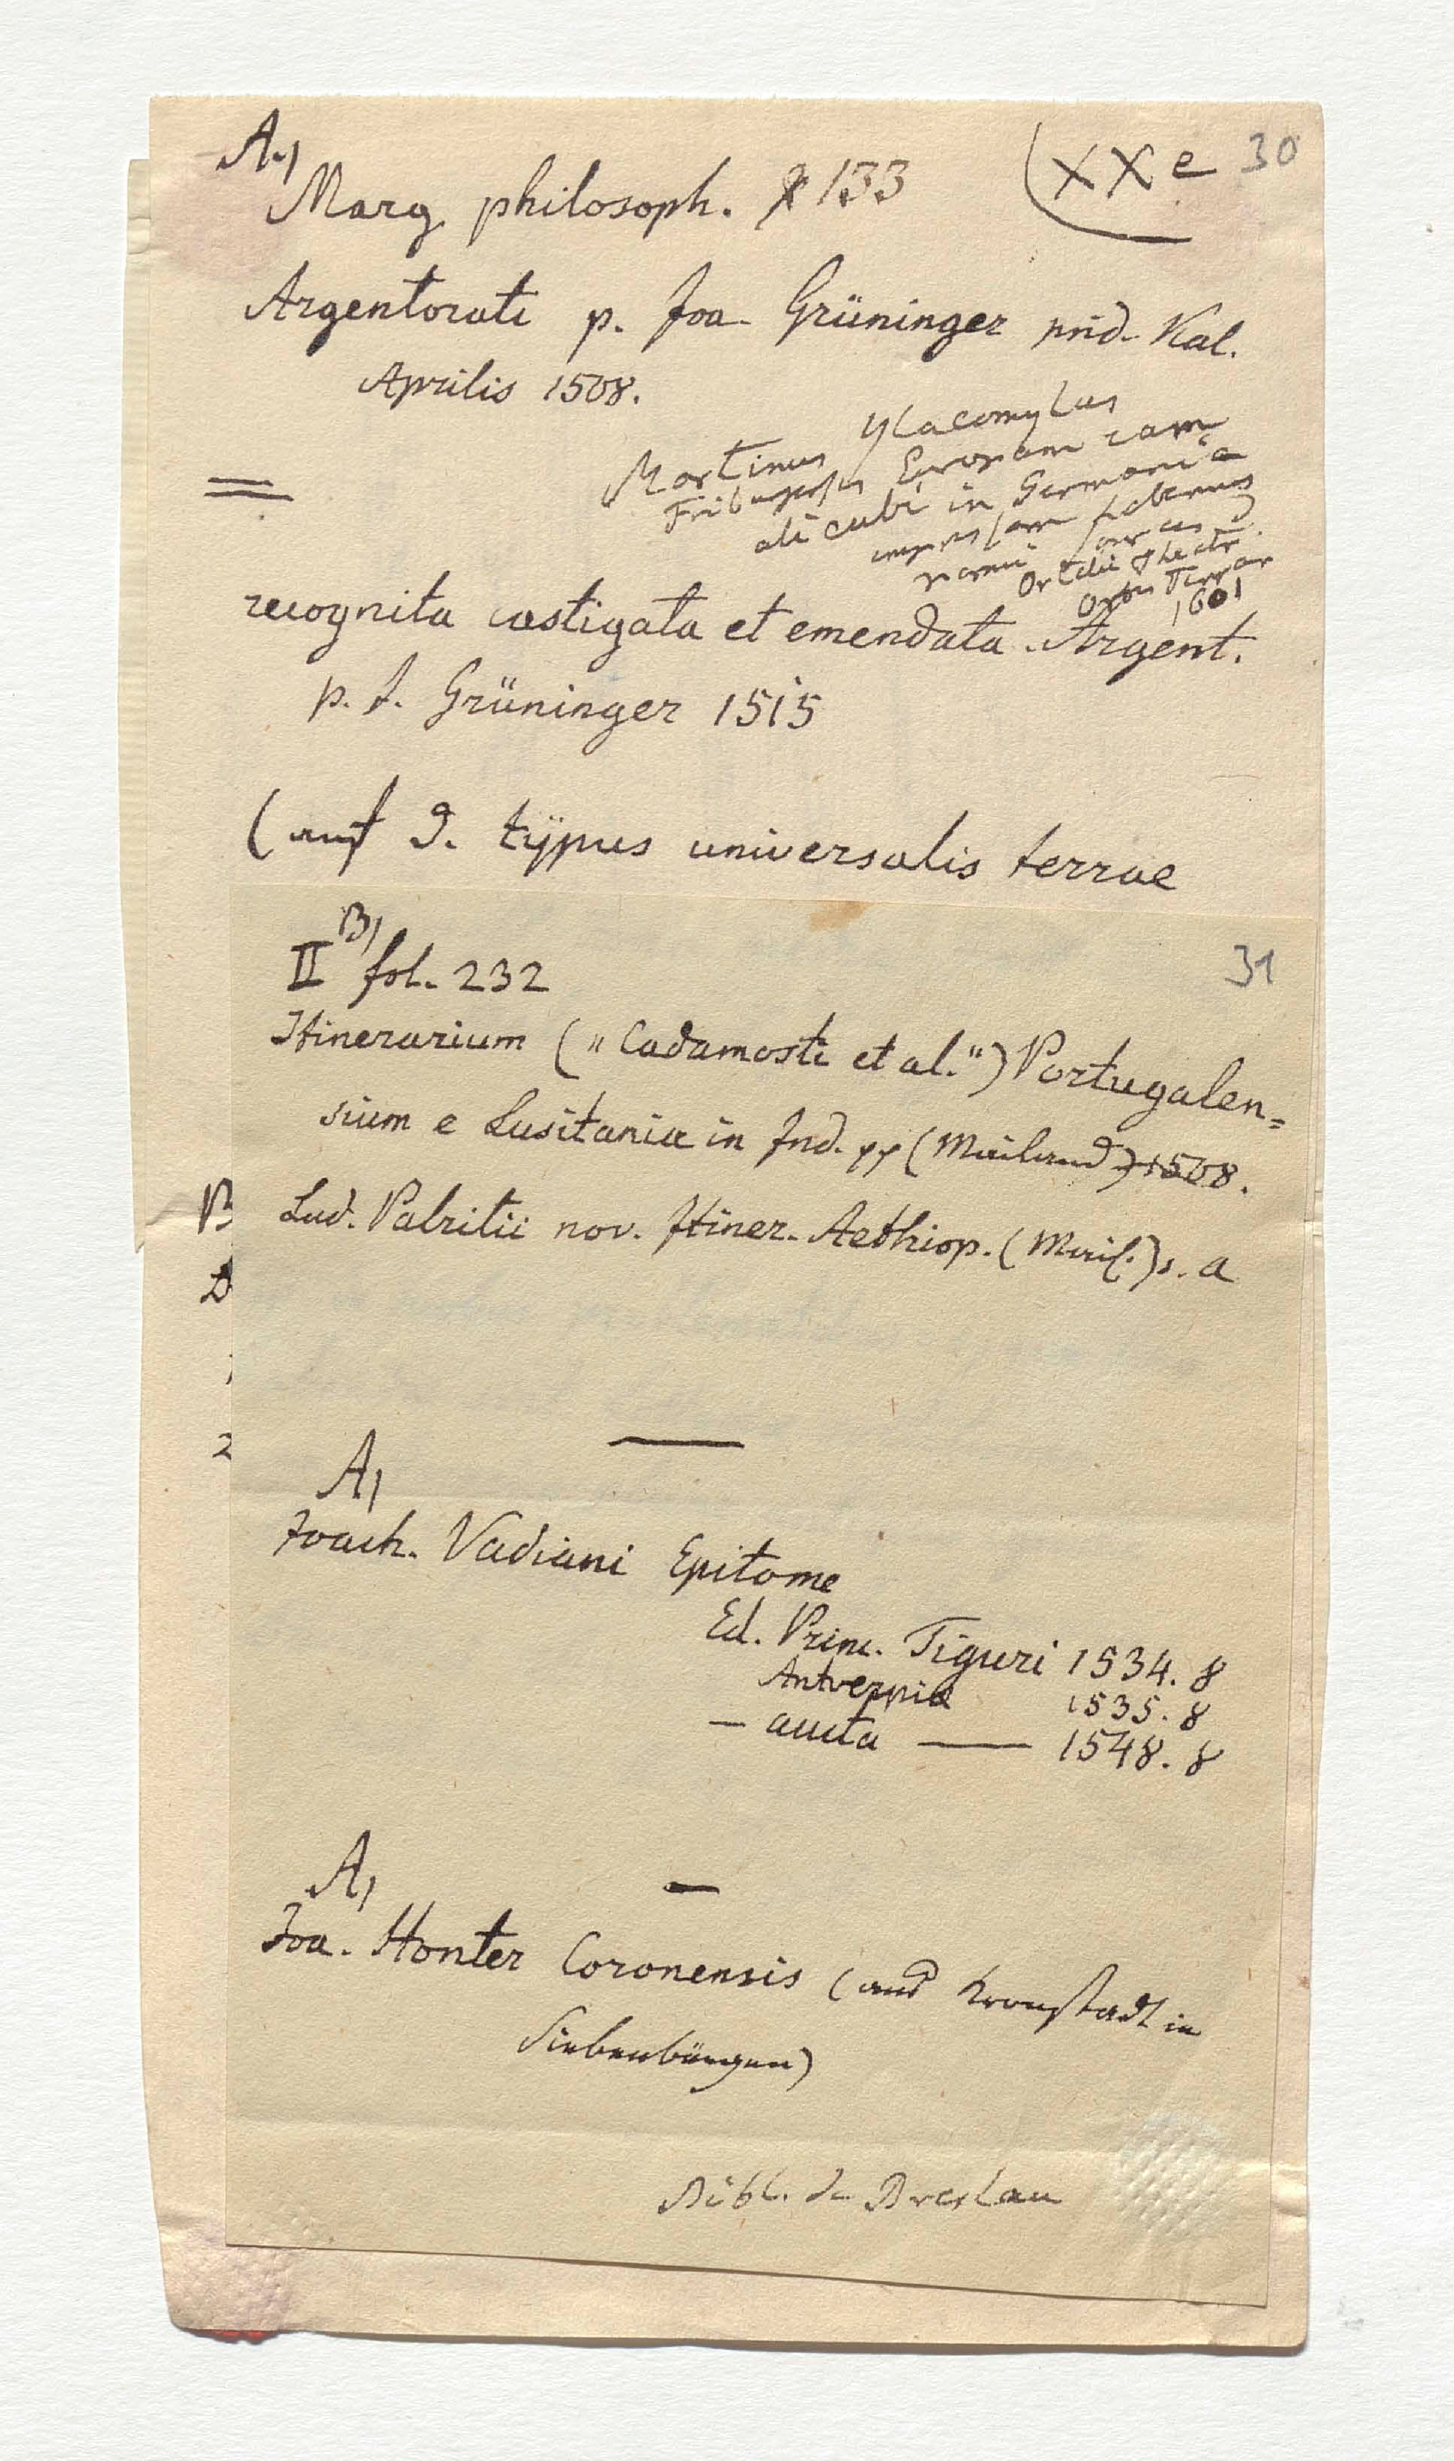 A.)
Marg. philosoph. 133
(XX e
30
Argentorati p. Joa. Grüninger prid. Kal.
Aprilis 1508.
Martinus Ylacomylus
Friburgensis Europam iam
alicubi in Germania
impressam habemus
Ortelii Theatr.
Orbis Terrar
1601
recognita castigata et emendata. Argent.
p. J. Grüninger 1515
(auf d. typus universalis terrae
B)
II fol. 232
31
Itinerarium („Cadamosti et al.“) Portugalen=
sium e Lusitania in Ind. pp (Mailand) 1508.
Lud. Patritii nov. Itiner. Aethiop. (Mail.) s. a
B
2
A)
Joach. Vadiani Epitome
Ed. Princ. Tiguri 1534. 8
Antverpiæ 1535. 8
— aucta — 1548. 8
A)
Joa. Honter Coronensis (aus Kronstadt in
Siebenbürgen)
Bibl. de Breslau